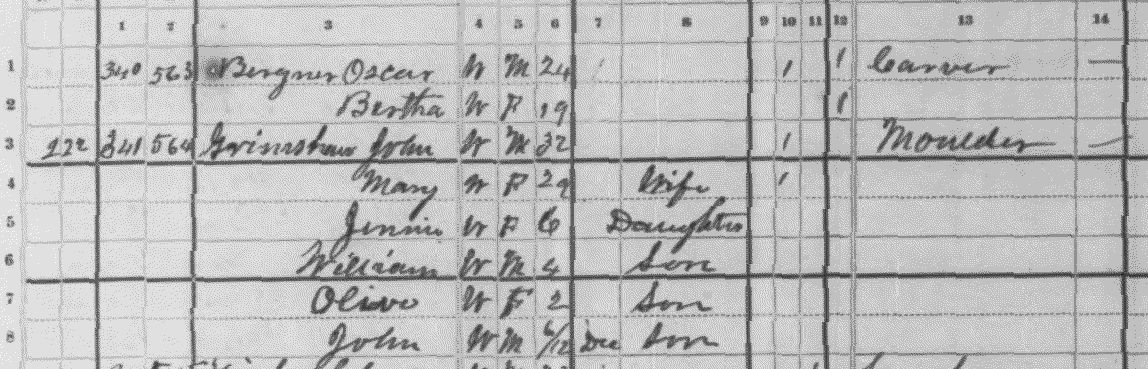 1 2 3 4 5 6 7 8 9 10 11 12 13 14
1 340 563 Bergner Oscar W M 24 / 1 1 Carver —
2 Bertha W F 19 1
3 222 341 564 Grimshaw John W M 32 1 Moulder —
4 Mary W F 29 Wife 1
5 Jennie W F 6 Daughter
6 William W M 4 Son
7 Olive W F 2 Son
8 John W M 6/12 Dec Son